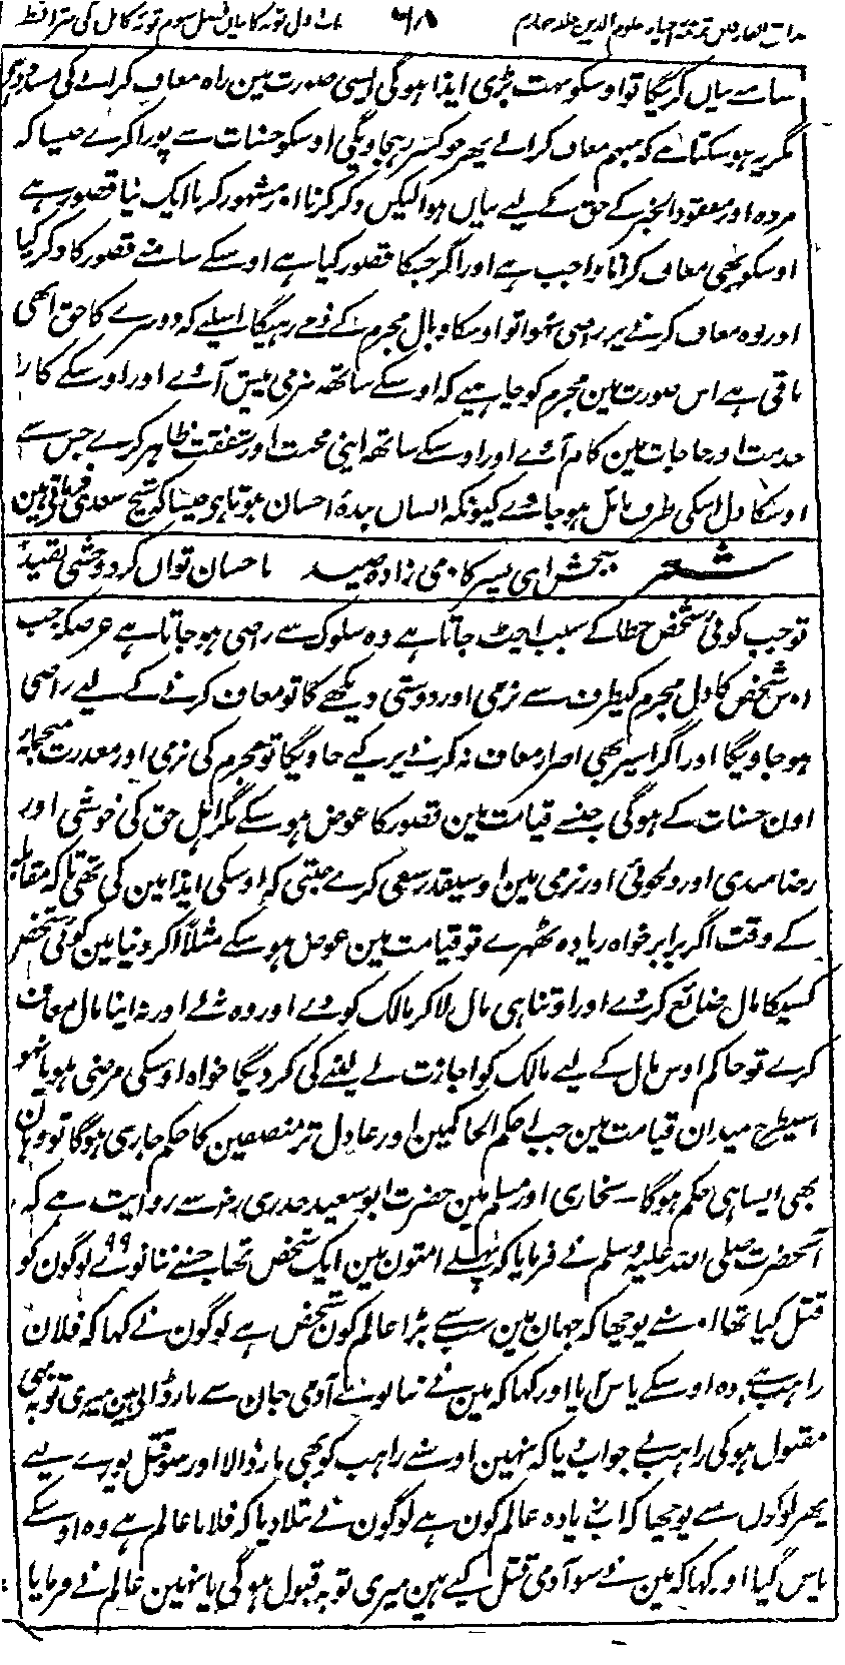 مذاق العارفین ترجمہ احیاء علوم الدین جلد چہارم ۶۸ باب اول توبہ کا بیان فصل سوم توبہ کامل کی شرائط
سامنے بیان کریگا تو اوسکو بہت بڑی ایذا ہوگی ایسی صورت مین راہ معاف کرانے کی
مگر یہ ہو سکتا ہے کہ مبہم معاف کرائے پھر جو کسر رہجاویگی اوسکو حسنات سے پورا کرے جیسا کہ
مردہ اور مفقود الخبر کے حق کے لیے بیان ہوا لیکن ذکر کرنا اور مشہور کرنا ایک نیا قصور ہے
اوسکو بھی معاف کرانا واجب ہے اور اگر جسکا قصور کیا ہے اوسکے سامنے قصور کا ذکر کیا
اور وہ معاف کرنے پر راضی نہوا تو اوسکا وبال مجرم کے ذمے رہیگا اسلیے کہ دوسرے کا حق ابھی
باقی ہے اس صورت مین مجرم کو چاہیے کہ اوسکے ساتھ نرمی پیش آئے اور اوسکے کار
خدمت اور حاجات مین کام آئے اور اوسکے ساتھ اپنی محبت اور شفقت ظاہر کرے جس سے
اوسکا دل اسکی طرف مائل ہو جائے کیونکہ انسان بندۂ احسان ہوتا ہو جیسا کہ شیخ سعدی فرماتے ہین
شعر ببخش ای پسر کآدمی زادہ صید باحسان توان کرد و وحشی بقید
تو جب کوئی شخص خطا کے سبب اچٹ جاتا ہے وہ سلوک سے راضی ہو جاتا ہے غرضکہ جب
اوس شخص کا دل مجرم کیطرف سے نرمی اور دوستی دیکھے گا تو معاف کرنے کے لیے راضی
ہو جاویگا اور اگر اسپر بھی اصرار معاف نہ کرنے پر کیے جاویگا تو مجرم کی نرمی اور معذرت منجملہ
اون حسنات کے ہوگی جنسے قیامت مین قصور کا عوض ہو سکے مگر اہل حق کی خوشی اور
رضامندی اور دلجوئی اور نرمی مین اوسیقدر سعی کرے جتنی کہ اوسکی ایذا مین کی تھی تاکہ مقابلہ
کے وقت اگر برابر خواہ زیادہ ٹھہرے تو قیامت مین عوض ہو سکے مثلاً اگر دنیا مین کوئی شخص
کسیکا مال ضائع کرے اور اوتنا ہی مال لاکر مالک کو دے اور وہ نہ لے اور نہ اپنا مال معاف
کرے تو حاکم اوس مال کے لیے مالک کو اجازت لے لینے کی کر دیگا خواہ اوسکی مرضی ہو یا نہو
اسیطرح میدان قیامت مین جب احکم الحاکمین اور عادل تر منصفین کا حکم جاری ہوگا تو وہان
بھی ایسا ہی حکم ہوگا۔ بخاری اور مسلم مین حضرت ابو سعید خدری رضہ سے روایت ہے کہ
آنحضرت صلی اللہ علیہ وسلم نے فرمایا کہ پہلے امتون مین ایک شخص تھا جسنے ننانوے ۹۹ لوگون کو
قتل کیا تھا اوسنے پوچھا کہ جہان مین سب سے بڑا عالم کون شخص ہے لوگون نے کہا کہ فلان
راہب ہے وہ اوسکے پاس آیا اور کہا کہ مین نے ننانوے آدمی جان سے مار ڈالے ہین میری توبہ بھی
مقبول ہوگی راہب نے جواب دیا کہ نہین اوسنے راہب کو بھی مار ڈالا اور سو قتل پورے کیے
پھر لوگون سے پوچھا کہ اب زیادہ عالم کون ہے لوگون نے بتلا دیا کہ فلانا عالم ہے وہ اوسکے
پاس گیا اور کہا کہ مین نے سو آدمی قتل کیے ہین میری توبہ قبول ہوگی یا نہین عالم نے فرمایا